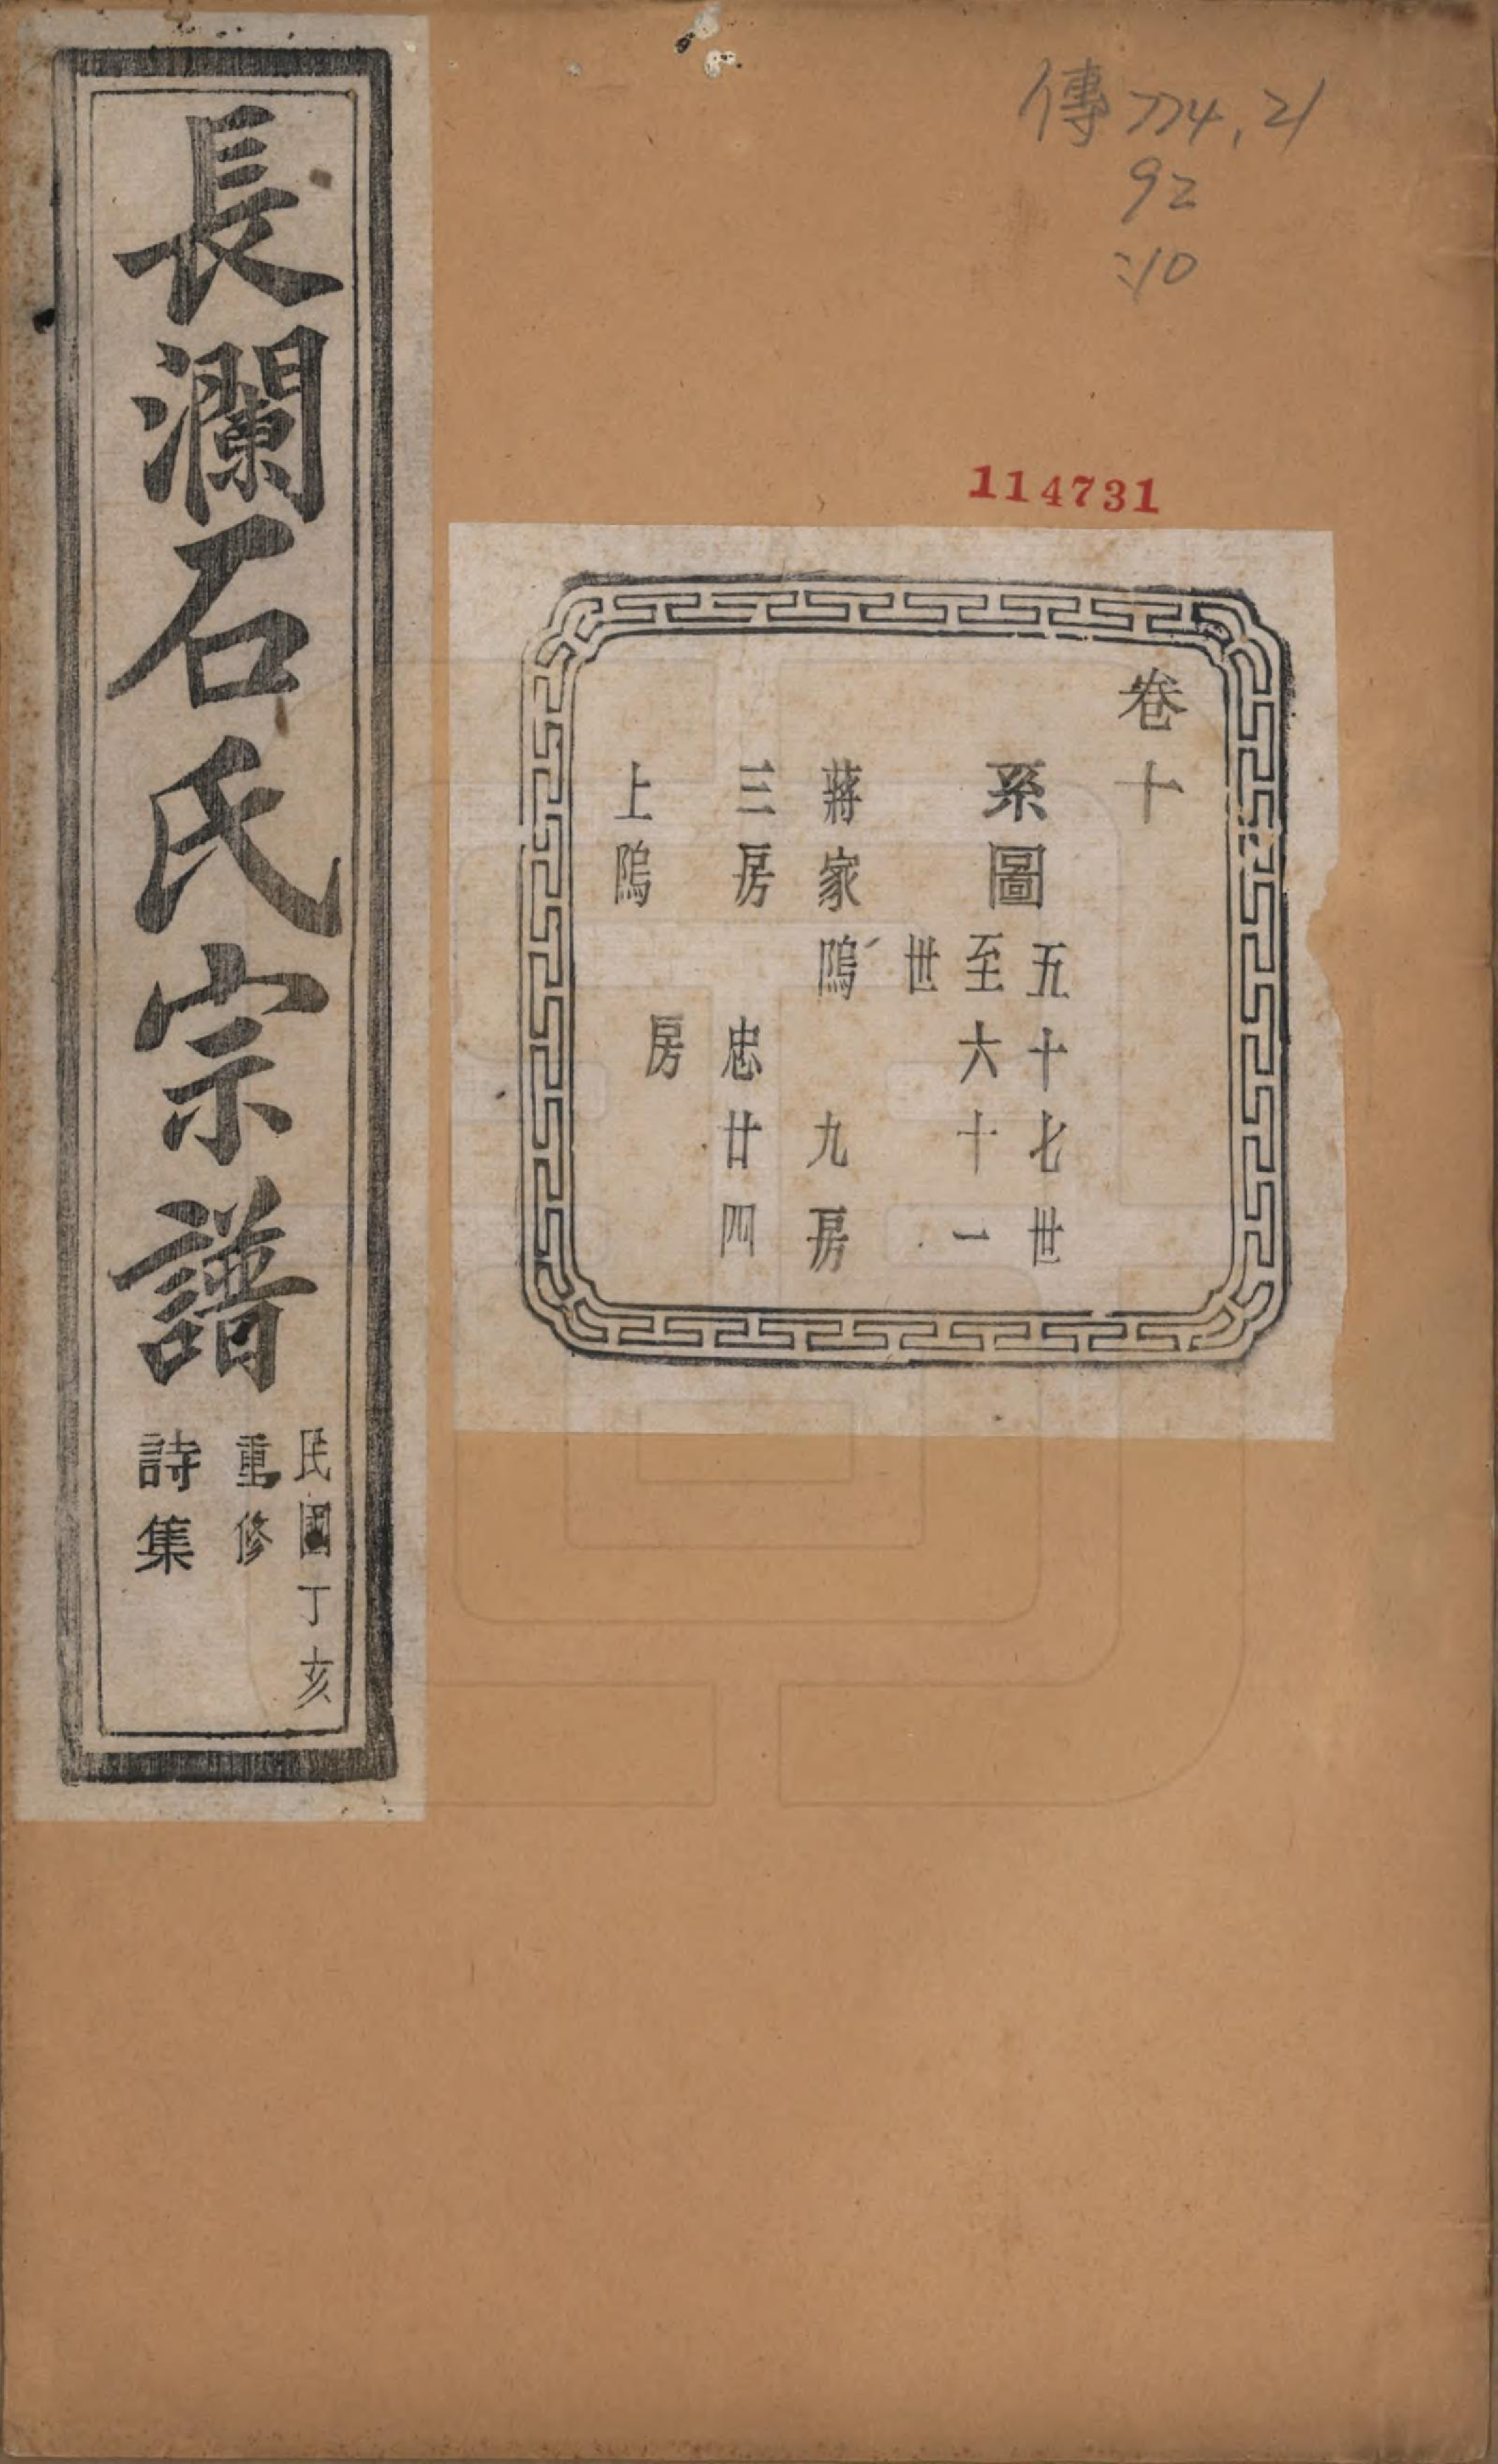 傳774.21
92
:10
114731
卷十
系圖
五十七世
至六十一
世
蔣家隖 九房
三房 忠廿四
房
上隖
長瀾石氏宗譜
民國丁亥
重修
詩集